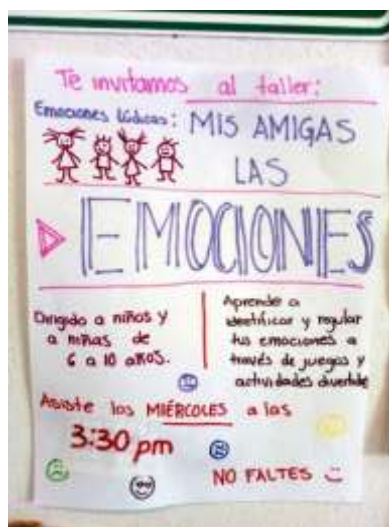 Te invitamos al taller:
Emociones Lúdicas: MIS AMIGAS
LAS
EMOCIONES
Dirigido a niños y
a niñas de
6 a 10 años.
Aprender a
identificar y regular
tus emociones a
través de juegos y
actividades divertide
Asiste los MIÉRCOLES a las
3:30 pm
NO FALTES